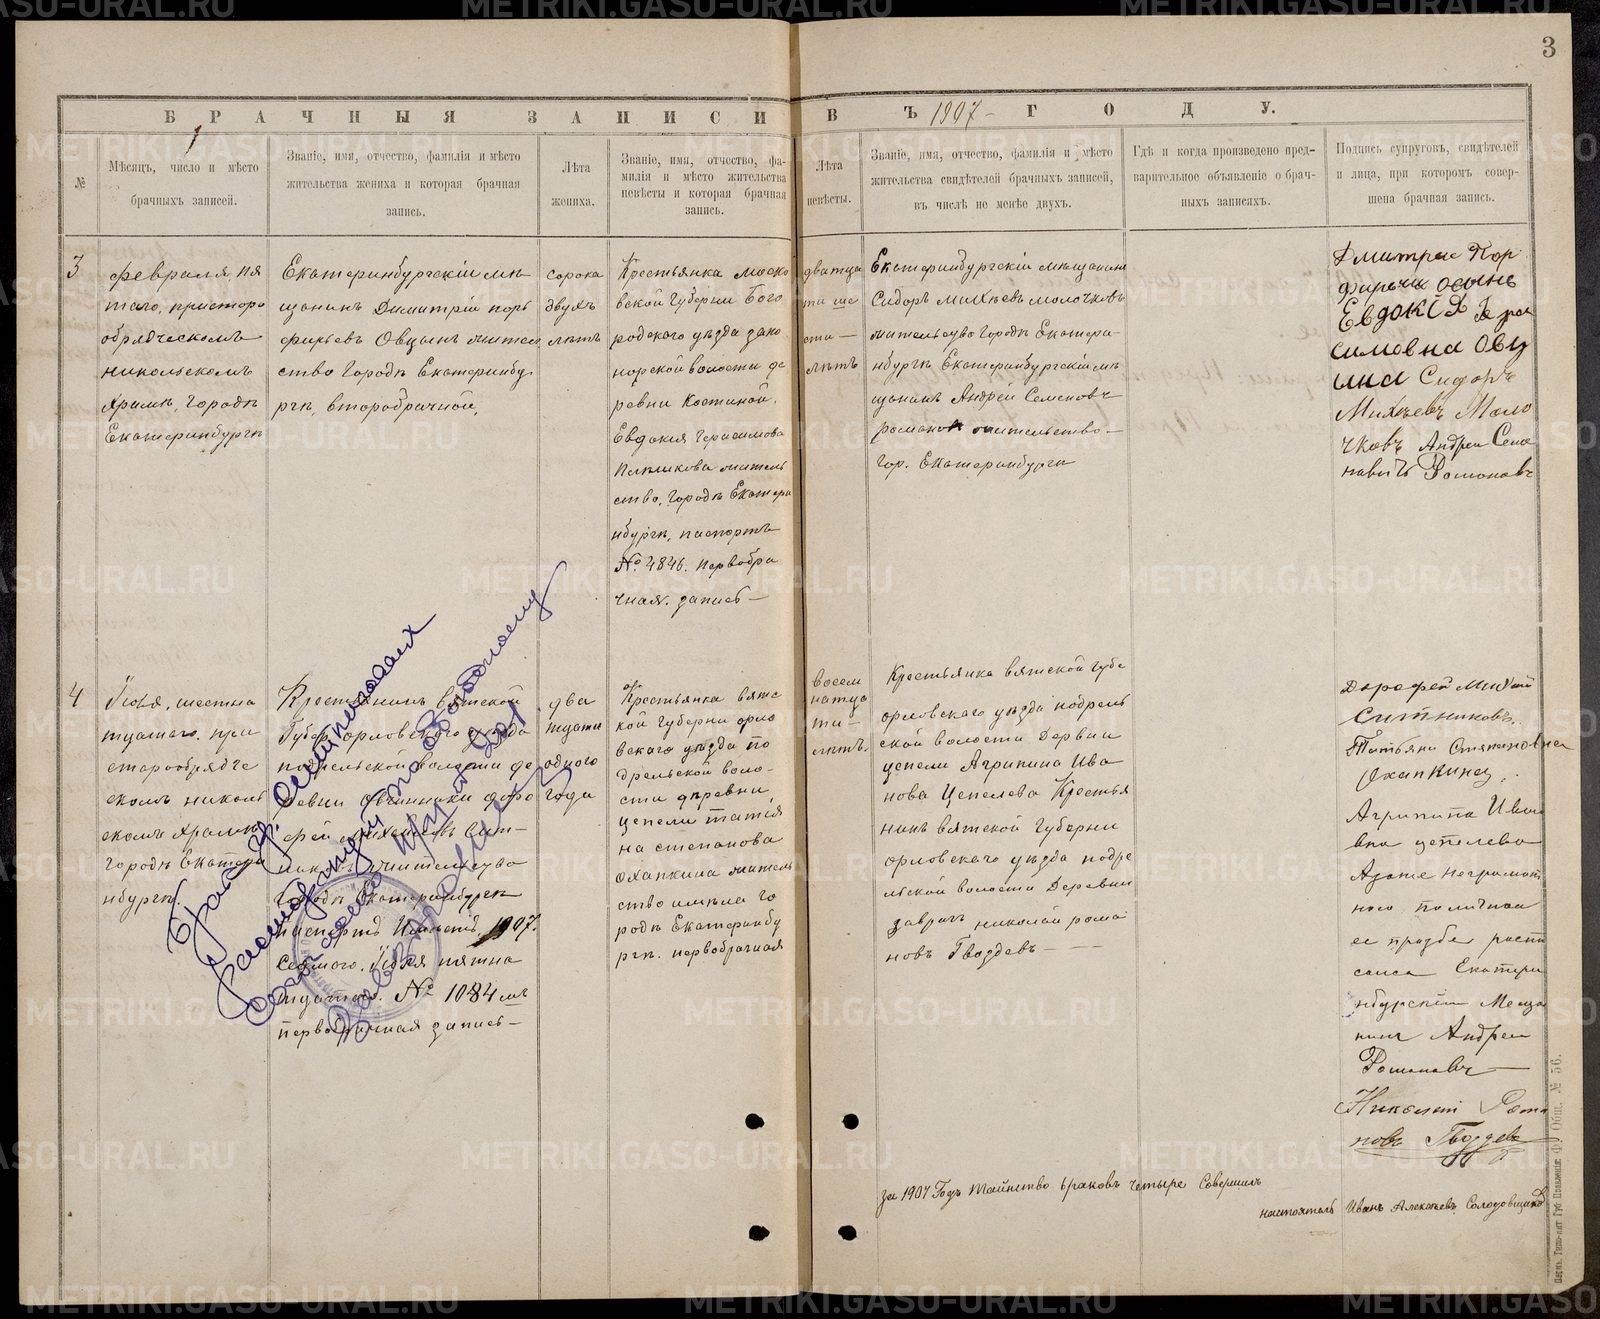 3
БРАЧНЫЯ ЗАПИСИ ВЪ 1907 ГОДУ.
№
Мѣсяцъ, число и мѣсто
брачныхъ записей.
Званіе, имя, отчество, фамилія и мѣсто
жительства жениха и которая брачная
запись.
Лѣта
жениха.
Званіе, имя, отчество, фа-
милія и мѣсто жительства
невѣсты и которая брачная
запись.
Лѣта
невѣсты.
Званіе, имя, отчество, фамилія и мѣсто
жительства свидѣтелей брачныхъ записей,
въ числѣ не менѣе двухъ.
Гдѣ и когда произведено пред-
варительное объявленіе о брач-
ныхъ записяхъ.
Подпись супруговъ, свидѣтелей
и лица, при которомъ совер-
шена брачная запись.
3
февраля, пя
таго, пристаро
обрядческомъ
никольскомъ
храмѣ, городѣ
Екатеринбургѣ
Екатеринбургскій мѣ
щанинъ Димитрій порѣ
фирьевъ Овцынъ жител
ство городѣ Екатеринбу
ргѣ, второбрачной,
сорока
двухъ
лѣтъ
Крестьянка моско
вской губерни Бого
родского уѣзда запо
норской волости де
ревни Костиной.
Евдокия Герасимова
жителѣ
ство, городѣ Екатери
нбургѣ, паспортъ
№ 4846. первобра
чная. запись—
дватца
ти ше
сти—
лѣтъ
Екатеринбургскій мѣщанинъ
Сидоръ Михѣевъ молочковъ
жительсво городѣ Екатери-
нбургѣ Екатеринбургскій мѣ
щанинъ Андрей Семеновъ
романов жительство—
гор. Екатеринбургѣ
Дмитрей Пор
фирьичь
Евдокія Гера
симовна Овц
ына Сидоръ
Михѣевъ Моло
чковъ Андреи Семе
новичъ Романовъ
4
шестна
тцатаго. при
старообрядче
скомъ николь
скомъ храмѣ
городѣ Екатери
нбургѣ.
Крестьянинъ вятской
Губер орловского уѣзда
подрельской волости де
ревни Овчинники доро
фей Михѣевъ Сит-
никовъ жительсво
Городѣ Екатеринбургѣ
паспортъ 1907.
седмого. пятна
тцатого. № 1084мъ
первобрачная запись—
два
тцати
одного
года
Крестьянка вятс
кой губерни орло
вского уѣзда по
дрельской воло-
сти деревни
цепели татія
на степанова
охапкина жителѣ
ство имѣла го
родѣ Екатеринбу
ргѣ. первобрачная
восем
натца
ти—
лѣтъ.
Крестьянка вятской губе
орловского уѣзда подрелѣ
ской волости Деревни
цепели Агрипина Ива
нова Цепелева Крестья
нинъ вятской губерни
орловского уѣзда подре
льской волости Деревни
николай рома
новъ Гвоздевъ—
Дорофей Михей
Ситниковъ.
Татьяна Степановна
Охапкина.
Агрипина Ивано
вна цепелева
Азаже неграмот
ного по личнои
ее прозбе роспи
сался Екатери
нбурскiи Меща
нинъ Андреи
Романовъ—
Николай Рома
новъ Гвоздевъ
Брак гр. Ситниковых
расторгнут по взаимному
Завзагс
за 1907 Годъ Таинство браковъ четыре Совершилъ
настоятель Иванъ Алексѣевъ Солодовщиков
METRIKI.GASO-URAL.RU